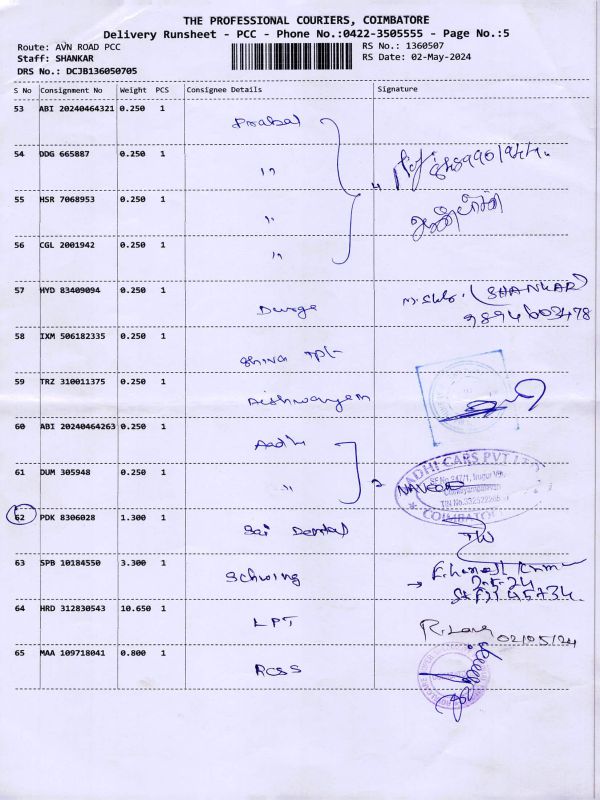 THE PROFESSIONAL COURIERS, COIMBATORE
Delivery Runsheet - PCC - Phone No.:0422-3505555 - Page No.:5
Route: AVN ROAD PCC
RS No.: 1360507
Staff: SHANKAR
RS Date: 02-May-2024
DRS No.: DCJB136050705
S No Consignment No Weight PCS Consignee Details Signature
53 ABI 20240464321 0.250 1 Prabal
54 DDG 665887 0.250 1 "
55 HSR 7068953 0.250 1 "
4
56 CGL 2001942 0.250 1 "
57 HYD 83409094 0.250 1 Durga (SHANKAR)
9894603478
58 IXM 506182335 0.250 1 Shiva TPL
59 TRZ 310011375 0.250 1
60 ABI 20240464263 0.250 1 Aadhi
61 DUM 305948 0.250 1 " 2
AADHI CARS PVT LTD
COIMBATORE
62 PDK 8306028 1.300 1 Sai Dental
63 SPB 10184550 3.300 1 Schwing
2-5-24
64 HRD 312830543 10.650 1 LPT
02/05/24
65 MAA 109718041 0.800 1 RCSS